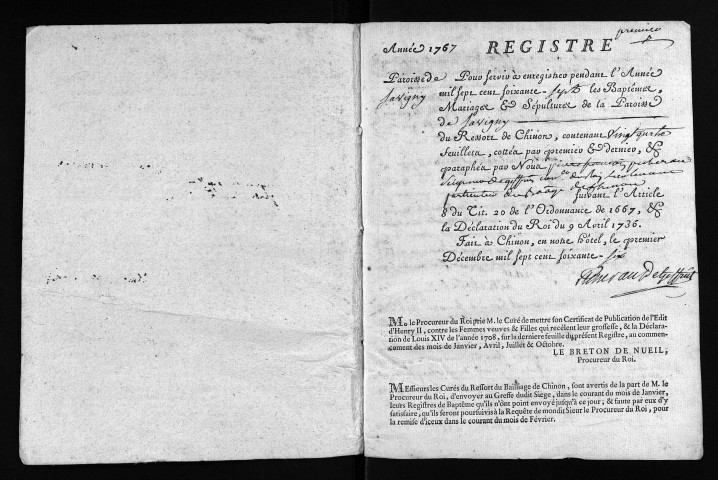 premier
Année 1767 REGISTRE
Paroisse de Savigny
Pour servir à enregistrer pendant l'Année
mil sept cent soixante-sept les Baptêmes,
Mariages & Sépultures de la Paroisse
de Savigny
du Ressort de Chinon, contenant vingt quatre
feuillets, cottés par premier & dernier, &
paraphés par Nous
particulier suivant l'Article
8 du Tit. 20 de l'Ordonnance de 1667, &
la Déclaration du Roi du 9 Avril 1736.
Fait à Chinon, en notre hôtel, le premier
Décembre mil sept cent soixante-six
M. le Procureur du Roi prie M. le Curé de mettre son Certificat de Publication de l'Edit
d'Henry II, contre les Femmes veuves & Filles qui recélent leur grossesse, & la Déclara-
ration de Louis XIV de l'année 1708, sur la derniere feuille du présent Registre, au commen-
cement des mois de Janvier, Avril, Juillet & Octobre.
LE BRETON DE NUEIL,
Procureur du Roi.
MEssieurs les Curés du Ressort du Bailliage de Chinon, sont avertis de la part de M. le
Procureur du Roi, d'envoyer au Greffe dudit Siege, dans le courant du mois de Janvier,
leurs Registres de Baptême qu'ils n'ont point envoyé jusqu'à ce jour; & faute par eux d'y
satisfaire, qu'ils seront poursuivis à la Requête de mondit Sieur le Procureur du Roi, pour
la remise d'iceux dans le courant du mois de Février.